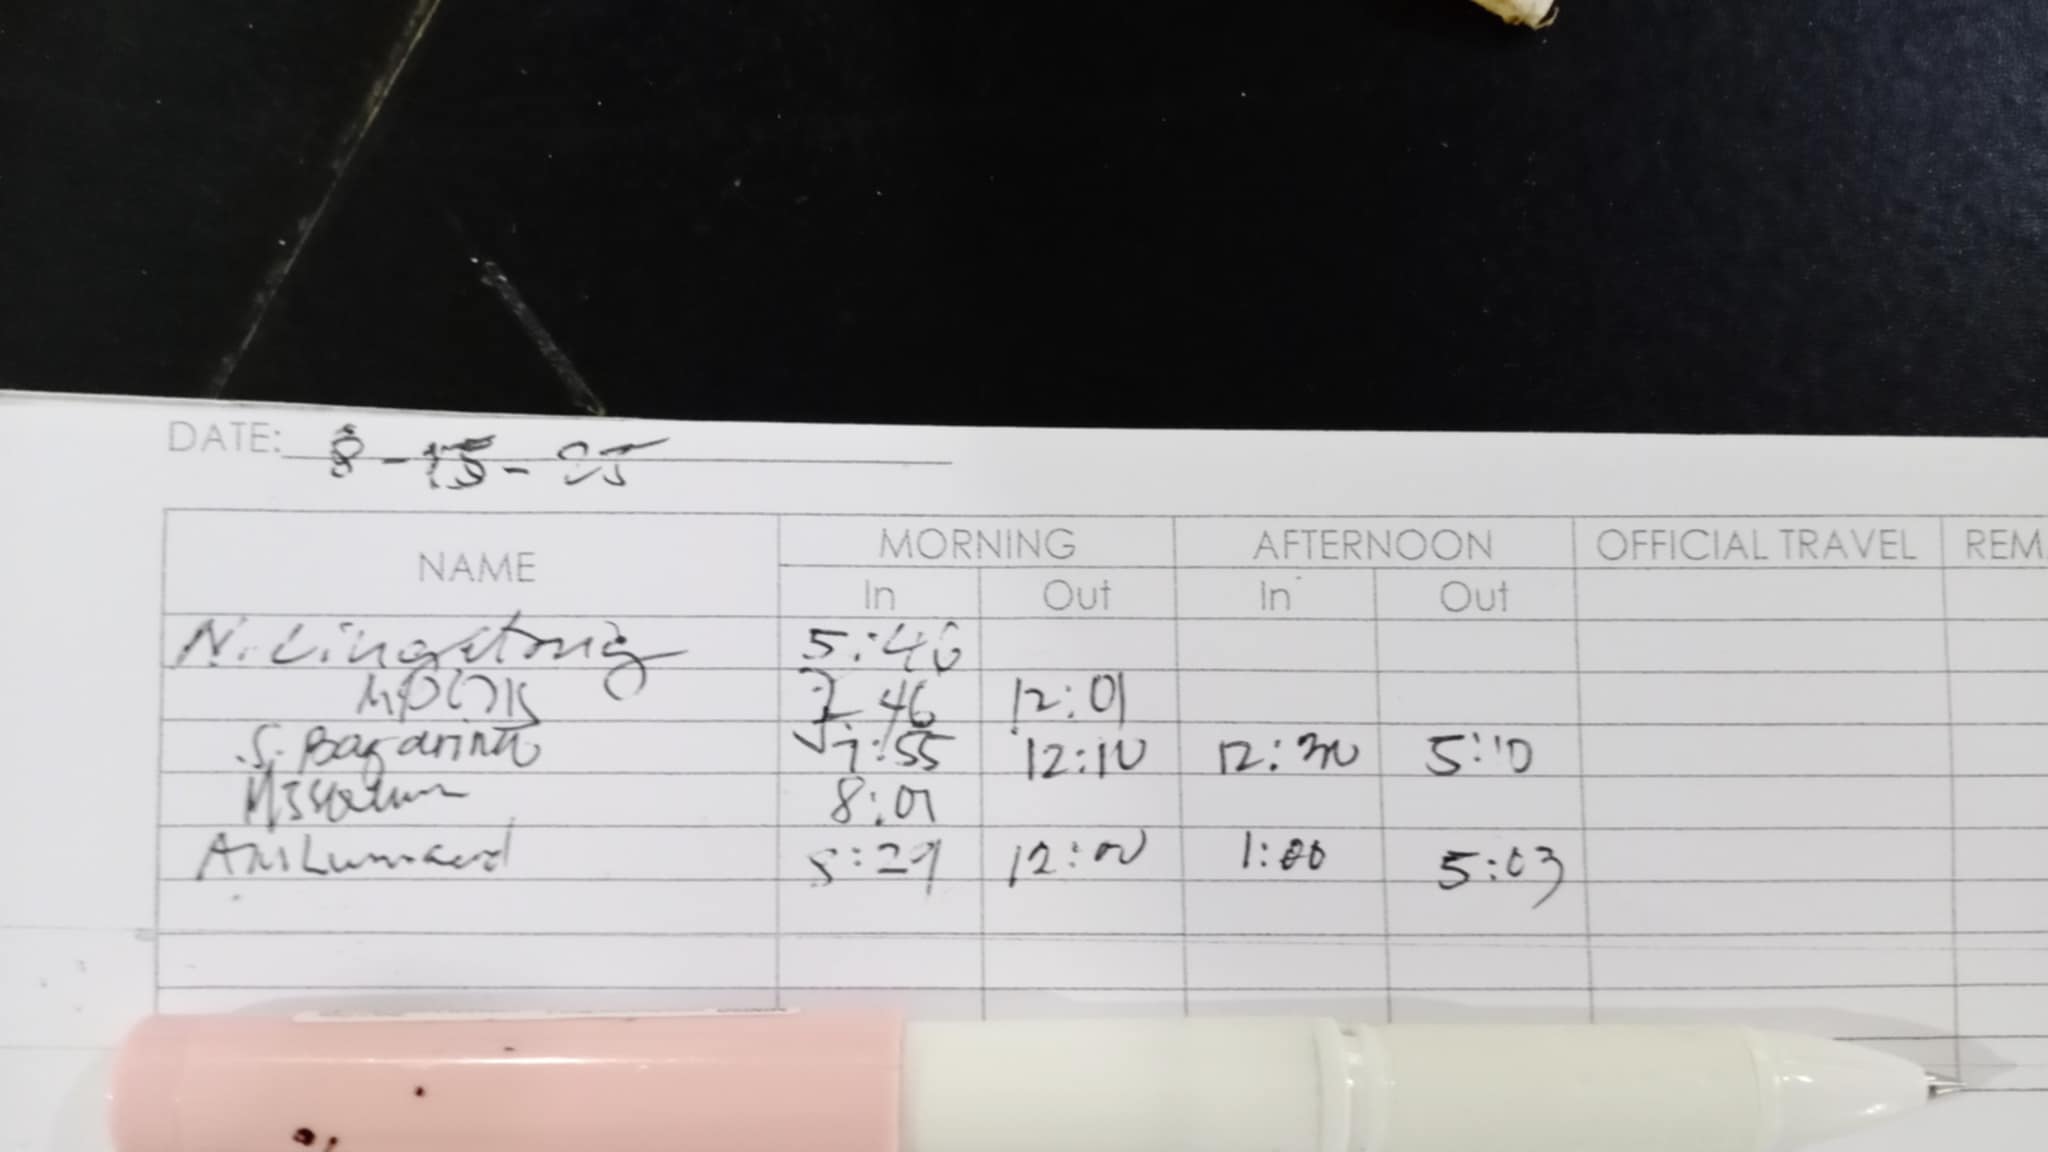 DATE: 8-15-25
NAME MORNING AFTERNOON OFFICIAL TRAVEL REM
In Out In Out
5:46
7:46 12:01
S. 7:55 12:10 12:30 5:10
8:01
5:29 12:00 1:00 5:03